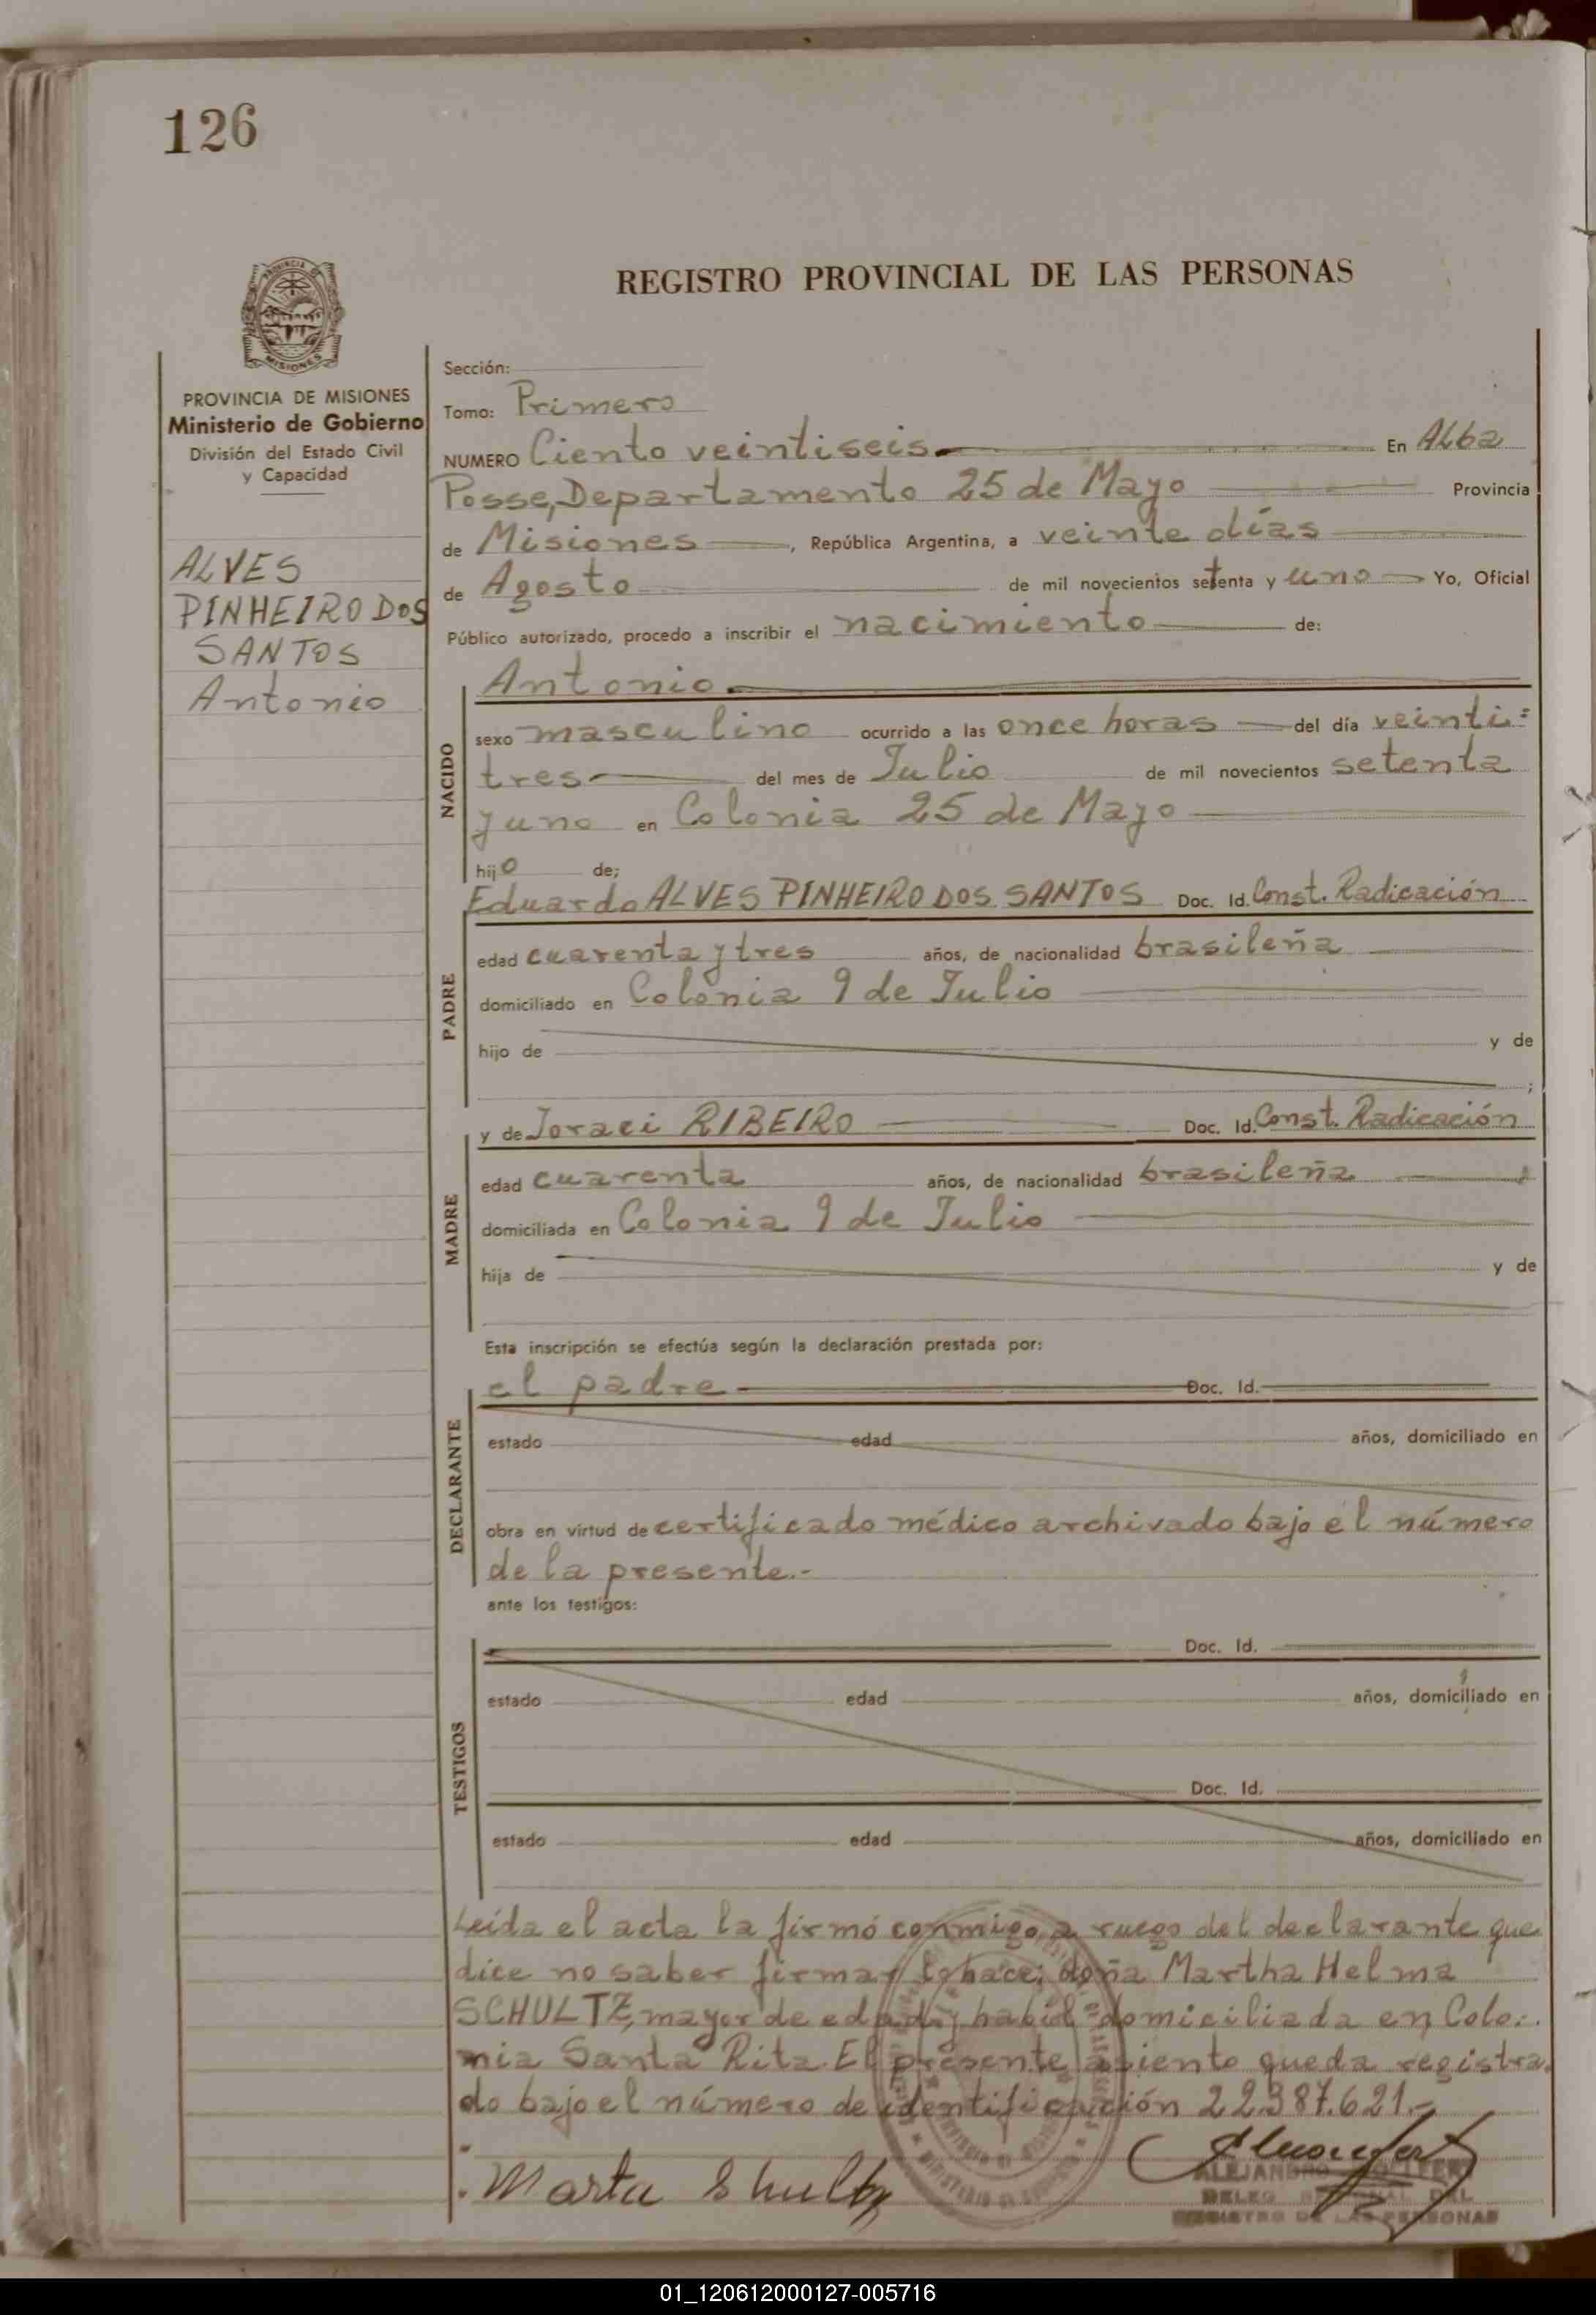 126
REGISTRO PROVINCIAL DE LAS PERSONAS
MISIONES
PROVINCIA DE MISIONES
Ministerio de Gobierno
División del Estado Civil
y Capacidad
ALVES
PINHEIRO DOS
SANTOS
Antonio
Sección:
Tomo: Primero
NUMERO Ciento veintiseis. En Alba
Posse, Departamento 25 de Mayo Provincia
de Misiones, República Argentina, a veinte días
de Agosto de mil novecientos setenta y uno Yo, Oficial
Público autorizado, procedo a inscribir el nacimiento de:
NACIDO
Antonio.
sexo masculino ocurrido a las once horas del día veinti=
tres del mes de Julio de mil novecientos setenta
y uno en Colonia 25 de Mayo
hijo de;
PADRE
Eduardo ALVES PINHEIRO DOS SANTOS Doc. Id. Const. Radicación
edad cuarenta y tres años, de nacionalidad brasileña
domiciliado en Colonia 9 de Julio
hijo de y de
;
MADRE
y de Joraci RIBEIRO Doc. Id. Const. Radicación
edad cuarenta años, de nacionalidad brasileña
domiciliada en Colonia 9 de Julio
hija de y de
Esta inscripción se efectúa según la declaración prestada por:
DECLARANTE
el padre Doc. Id.
estado edad años, domiciliado en
obra en virtud de certificado médico archivado bajo el número
de la presente.-
ante los testigos:
TESTIGOS
Doc. Id.
estado edad años, domiciliado en
Doc. Id.
estado edad años, domiciliado en
Leída el acta la firmó conmigo, a ruego del declarante que
dice no saber firmar lo hace: doña Martha Helma
SCHULTZ, mayor de edad y habil= domiciliada en Colo=
nia Santa Rita. El presente asiento queda registra=
do bajo el número de identificación 22.387.621.-
Marta Shultz
ALEJANDRO
DEL
REGISTRO DE LAS PERSONAS
01_120612000127-005716